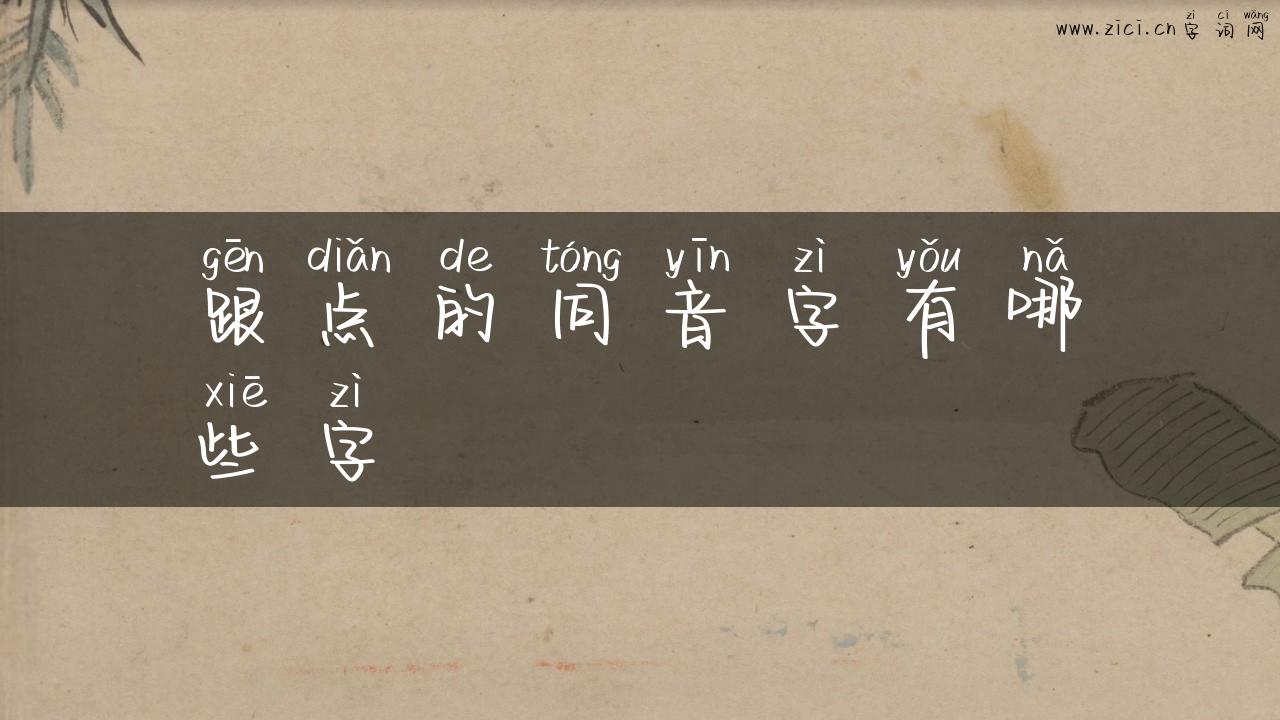 zì cí wǎng
www.zici.cn 字词网
gēn diǎn de tóng yīn zì yǒu nǎ
跟点的同音字有哪
xiē zì
些字